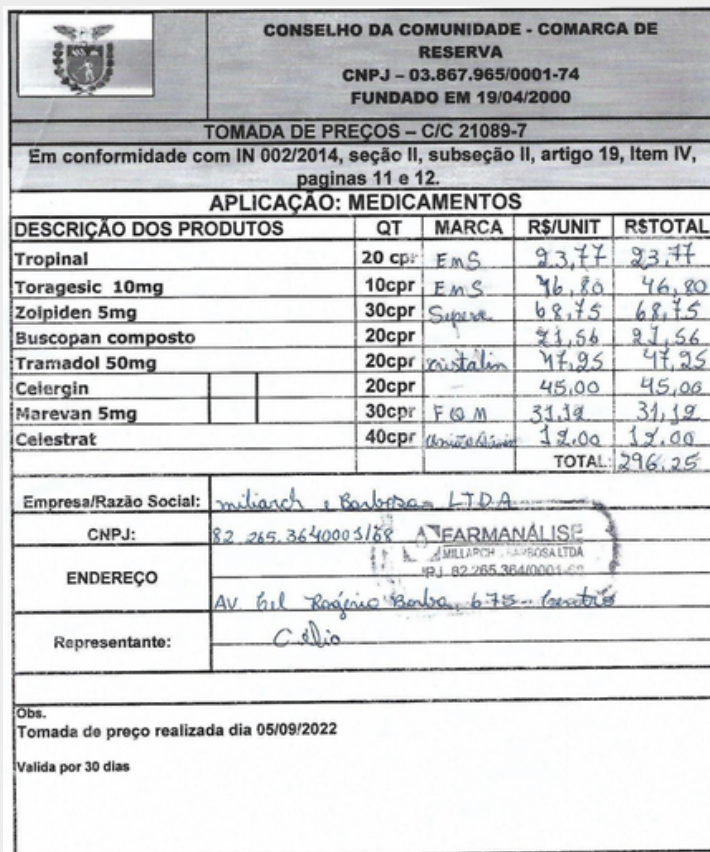 CONSELHO DA COMUNIDADE - COMARCA DE
RESERVA
CNPJ – 03.867.965/0001-74
FUNDADO EM 19/04/2000
TOMADA DE PREÇOS – C/C 21089-7
Em conformidade com IN 002/2014, seção II, subseção II, artigo 19, Item IV,
paginas 11 e 12.
APLICAÇÃO: MEDICAMENTOS
DESCRIÇÃO DOS PRODUTOS QT MARCA R$/UNIT R$TOTAL
Tropinal 20 cpr EMS 23,77 23,77
Toragesic 10mg 10cpr EMS 46,80 46,80
Zolpiden 5mg 30cpr 68,75 68,75
Buscopan composto 20cpr 21,56 21,56
Tramadol 50mg 20cpr 47,25 47,25
Celergin 20cpr - 45,00 45,00
Marevan 5mg 30cpr FQM 31,12 31,12
Celestrat 40cpr 12.00 12.00
TOTAL: 296,25
Empresa/Razão Social: miliarch e Barbosa LTDA
CNPJ: 82 265.3640001/68
FARMANÁLISE
MILLARCH BARBOSA LTDA
82.265.364/0001-68
ENDEREÇO
AV. Cel Rogério Borba, 675 - Centro
Representante: Célio
Obs.
Tomada de preço realizada dia 05/09/2022
Valida por 30 dias